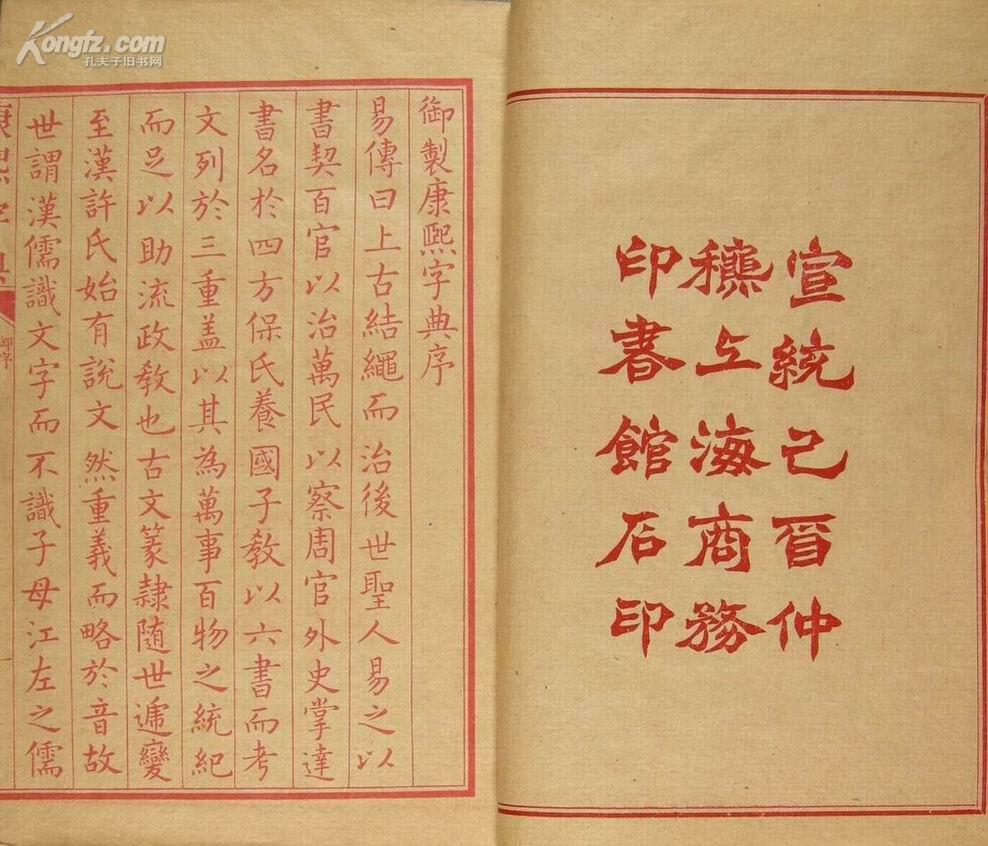 Kongfz.com
孔夫子旧书网
宣統己酉仲
龝上海商務
印書館石印
御製康熙字典序
易傳曰上古結繩而治後世聖人易之以
書契百官以治萬民以察周官外史掌達
書名於四方保氏養國子敎以六書而考
文列於三重盖以其為萬事百物之統紀
而足以助流政敎也古文篆隷随世遞變
至漢許氏始有說文然重義而略於音故
世謂漢儒識文字而不識子母江左之儒
康熙字典
御序